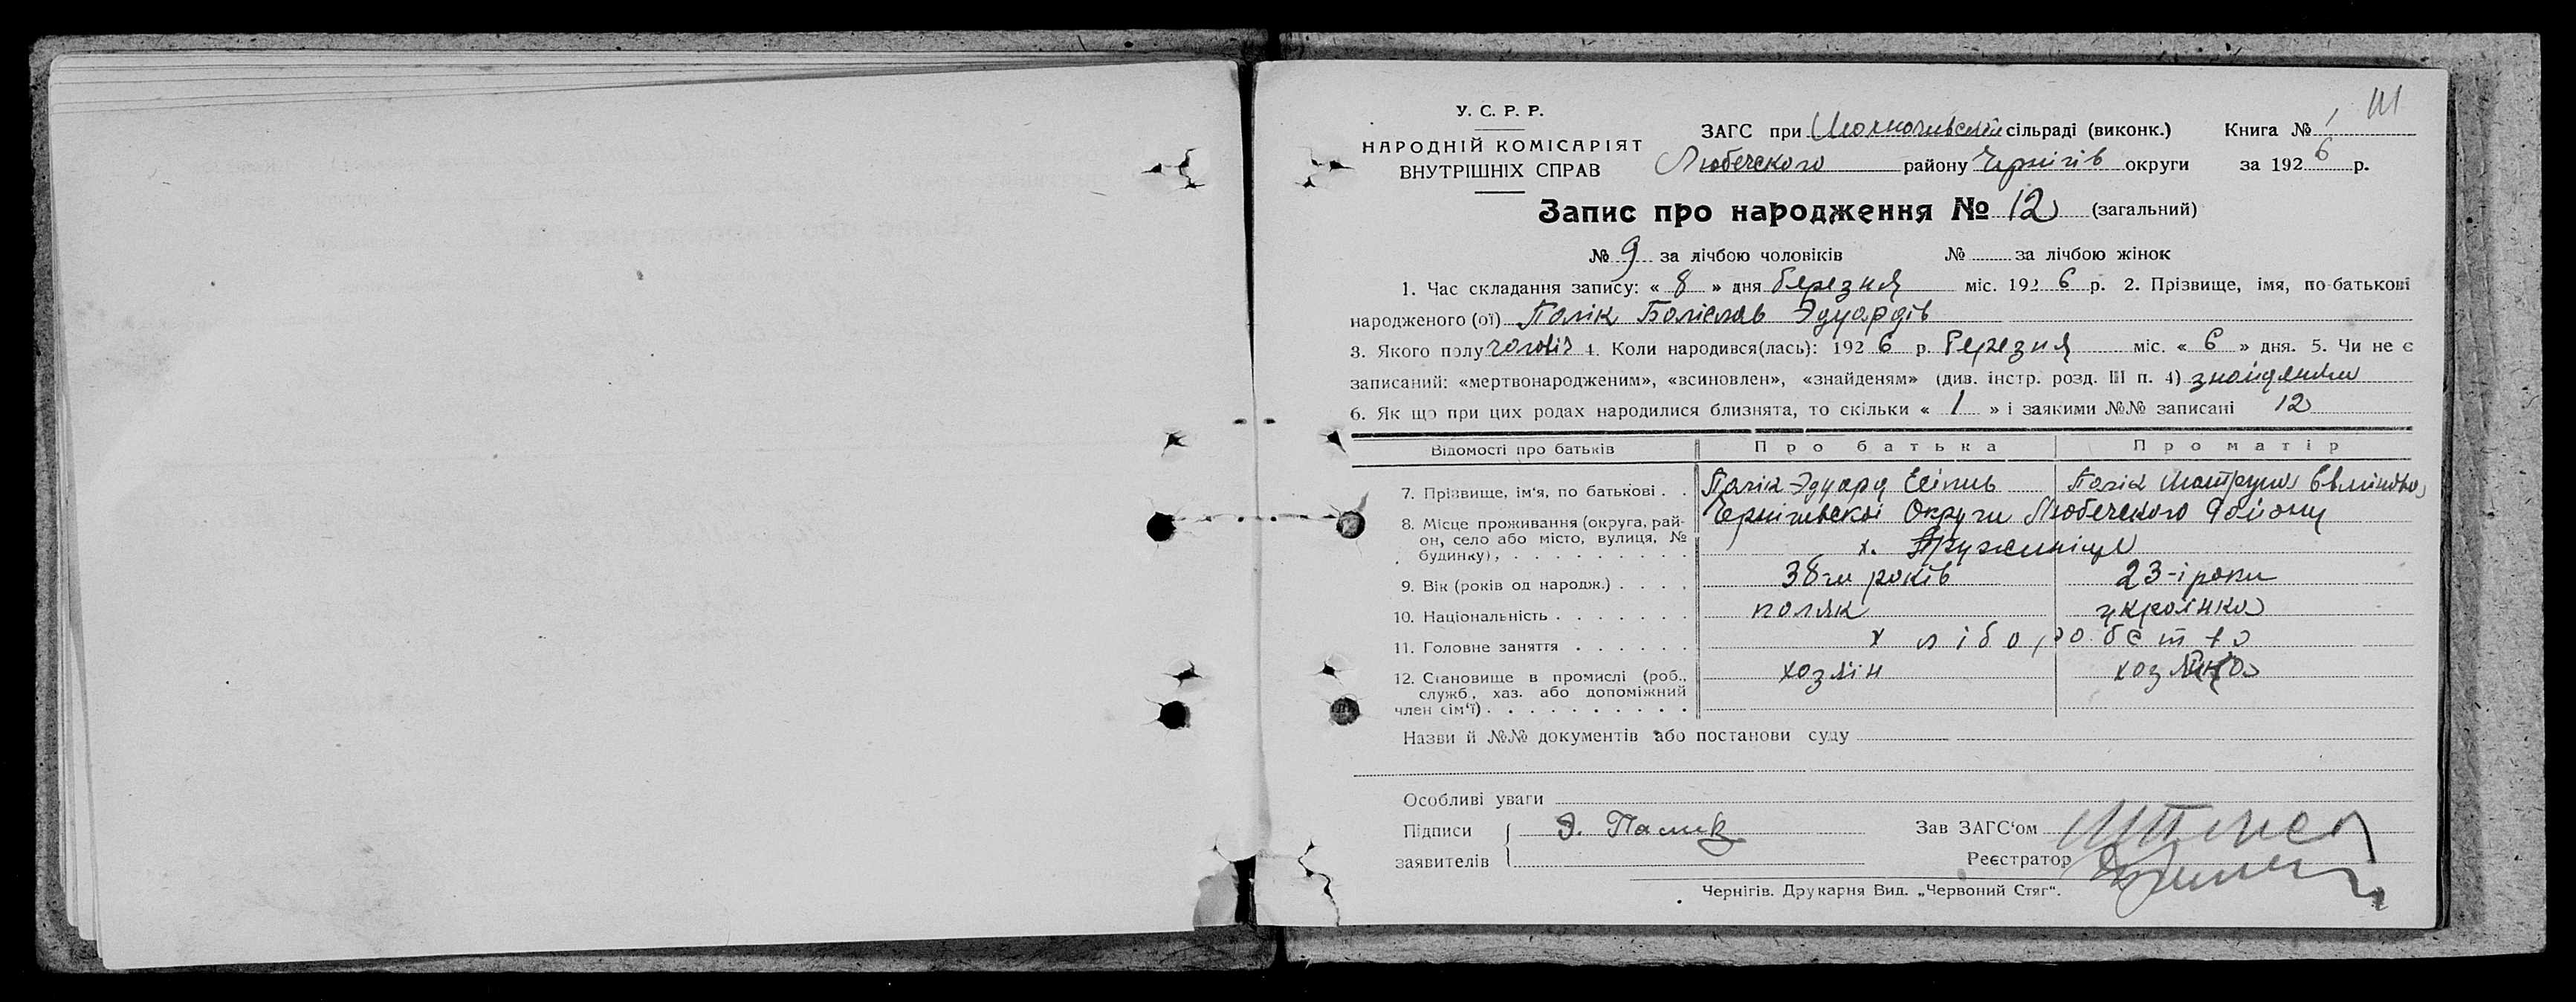 У. С. Р. Р.
НАРОДНІЙ КОМІСАРІЯТ
ВНУТРІШНІХ СПРАВ
ЗАГС при сільраді (виконк.) Книга № 1
Любечского району Чернігів округи за 1926 р.
Запис про народження № 12 (загальний)
№ 9 за лічбою чоловіків № за лічбою жінок
1. Час складання запису: « 8 » дня березня міс. 1926 р. 2. Прізвище, імя, по-батькові
народженого (ої) ПалікБоліслав Эдуардів
3. Якого полу чоловіз 4. Коли народився(лась): 1926 р. березня міс. « 6 » дня. 5. Чи не є
записаний: «мертвонародженим», «всиновлен», «знайденям» (див. інстр. розд. III п. 4) знойденям
6. Як що при цих родах народилися близнята, то скільки « 1 » і заякими №№ записані 12
Відомості про батьків Про батька Про матір
7. Прізвище, ім'я, по батькові . . Палік Эдуард Палік
8. Місце проживання (округа, рай-
он, село або місто, вулиця, №
будинку), . . . . . . . . . Чернігивскоі Округи Любечского
х.
9. Вік (років од народж.) . . . . 38-м років 23-і роки
10. Національність . . . . . . . поляк украінка
11. Головне заняття . . . . . . хліборобство
12. Становище в промислі (роб.,
служб., хаз. або допоміжний
член сім'ї) . . . . . . . . . . хозяін
Назви й №№ документів або постанови суду
Особливі уваги
Підписи Э. Палик Зав ЗАГС'ом
заявителів Реєстратор
Чернігів. Друкарня Вид. „Червоний Стяг".